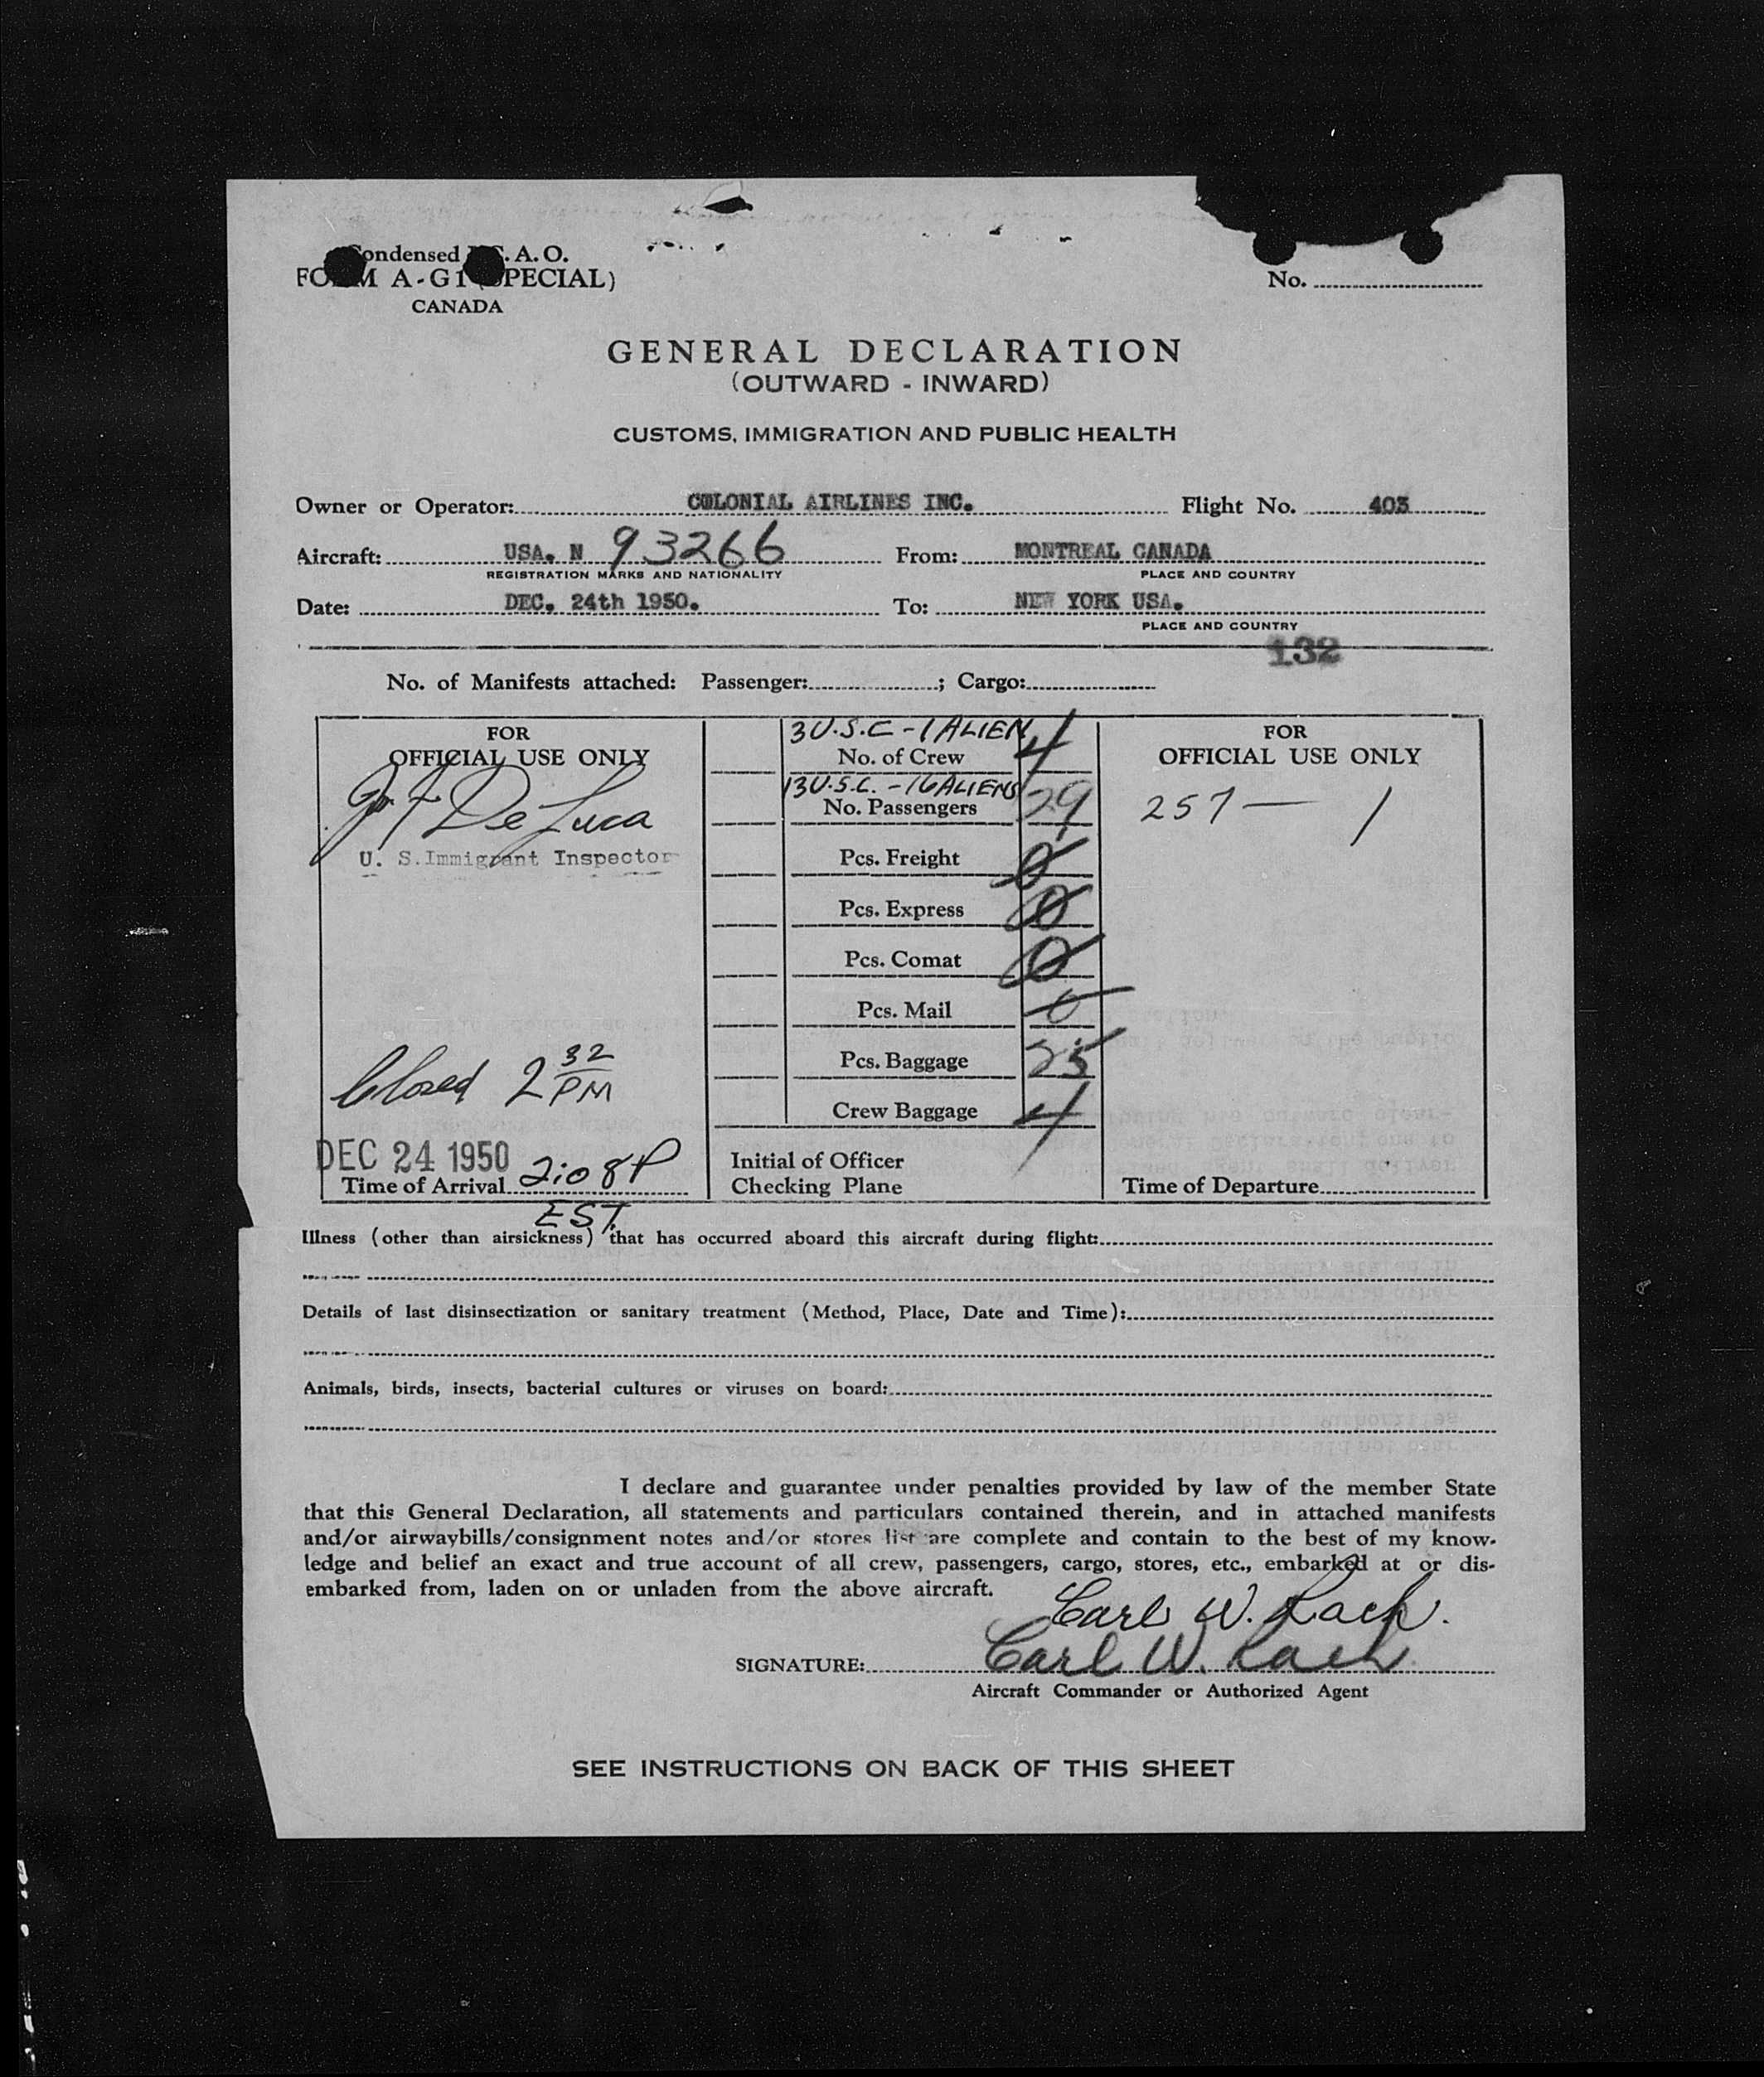 Condensed I.C.A.O.
FORM A-G1 (SPECIAL)
CANADA
No.
GENERAL DECLARATION
(OUTWARD - INWARD)
CUSTOMS, IMMIGRATION AND PUBLIC HEALTH
Owner or Operator: COLONIAL AIRLINES INC. Flight No. 403
Aircraft: USA. N 93266 From: MONTREAL CANADA
REGISTRATION MARKS AND NATIONALITY PLACE AND COUNTRY
Date: DEC. 24th 1950. To: NEW YORK USA.
PLACE AND COUNTRY
132
No. of Manifests attached: Passenger: ; Cargo:
FOR
OFFICIAL USE ONLY
De Luca
U. S. Immigrant Inspector
Closed 2 32 PM
DEC 24 1950
Time of Arrival 2:08 P
EST.
3 U.S.C - 1 ALIEN
No. of Crew 4
13 U.S.C. - 16 ALIENS
No. Passengers 29
Pcs. Freight 0
Pcs. Express 0
Pcs. Comat 0
Pcs. Mail 0
Pcs. Baggage 25
Crew Baggage 4
Initial of Officer
Checking Plane
FOR
OFFICIAL USE ONLY
257 — 1
Time of Departure
Illness (other than airsickness) that has occurred aboard this aircraft during flight:
Details of last disinsectization or sanitary treatment (Method, Place, Date and Time):
Animals, birds, insects, bacterial cultures or viruses on board:
I declare and guarantee under penalties provided by law of the member State
that this General Declaration, all statements and particulars contained therein, and in attached manifests
and/or airwaybills/consignment notes and/or stores list are complete and contain to the best of my know-
ledge and belief an exact and true account of all crew, passengers, cargo, stores, etc., embarked at or dis-
embarked from, laden on or unladen from the above aircraft.
Carl W. Rach.
SIGNATURE: Carl W. Rach
Aircraft Commander or Authorized Agent
SEE INSTRUCTIONS ON BACK OF THIS SHEET